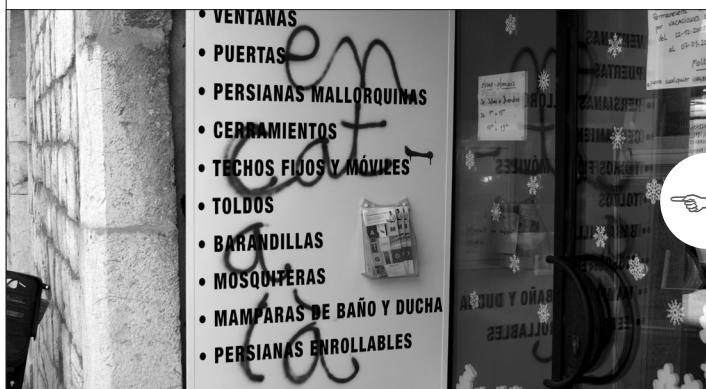 • VENTANAS
• PUERTAS
• PERSIANAS MALLORQUINAS
• CERRAMIENTOS
• TECHOS FIJOS Y MÓVILES
• TOLDOS
• BARANDILLAS
• MOSQUITERAS
• MAMPARAS DE BAÑO Y DUCHA
• PERSIANAS ENROLLABLES
en
cat-
a-
là
por VACACIONES
del 22-12-200
al
cualquier